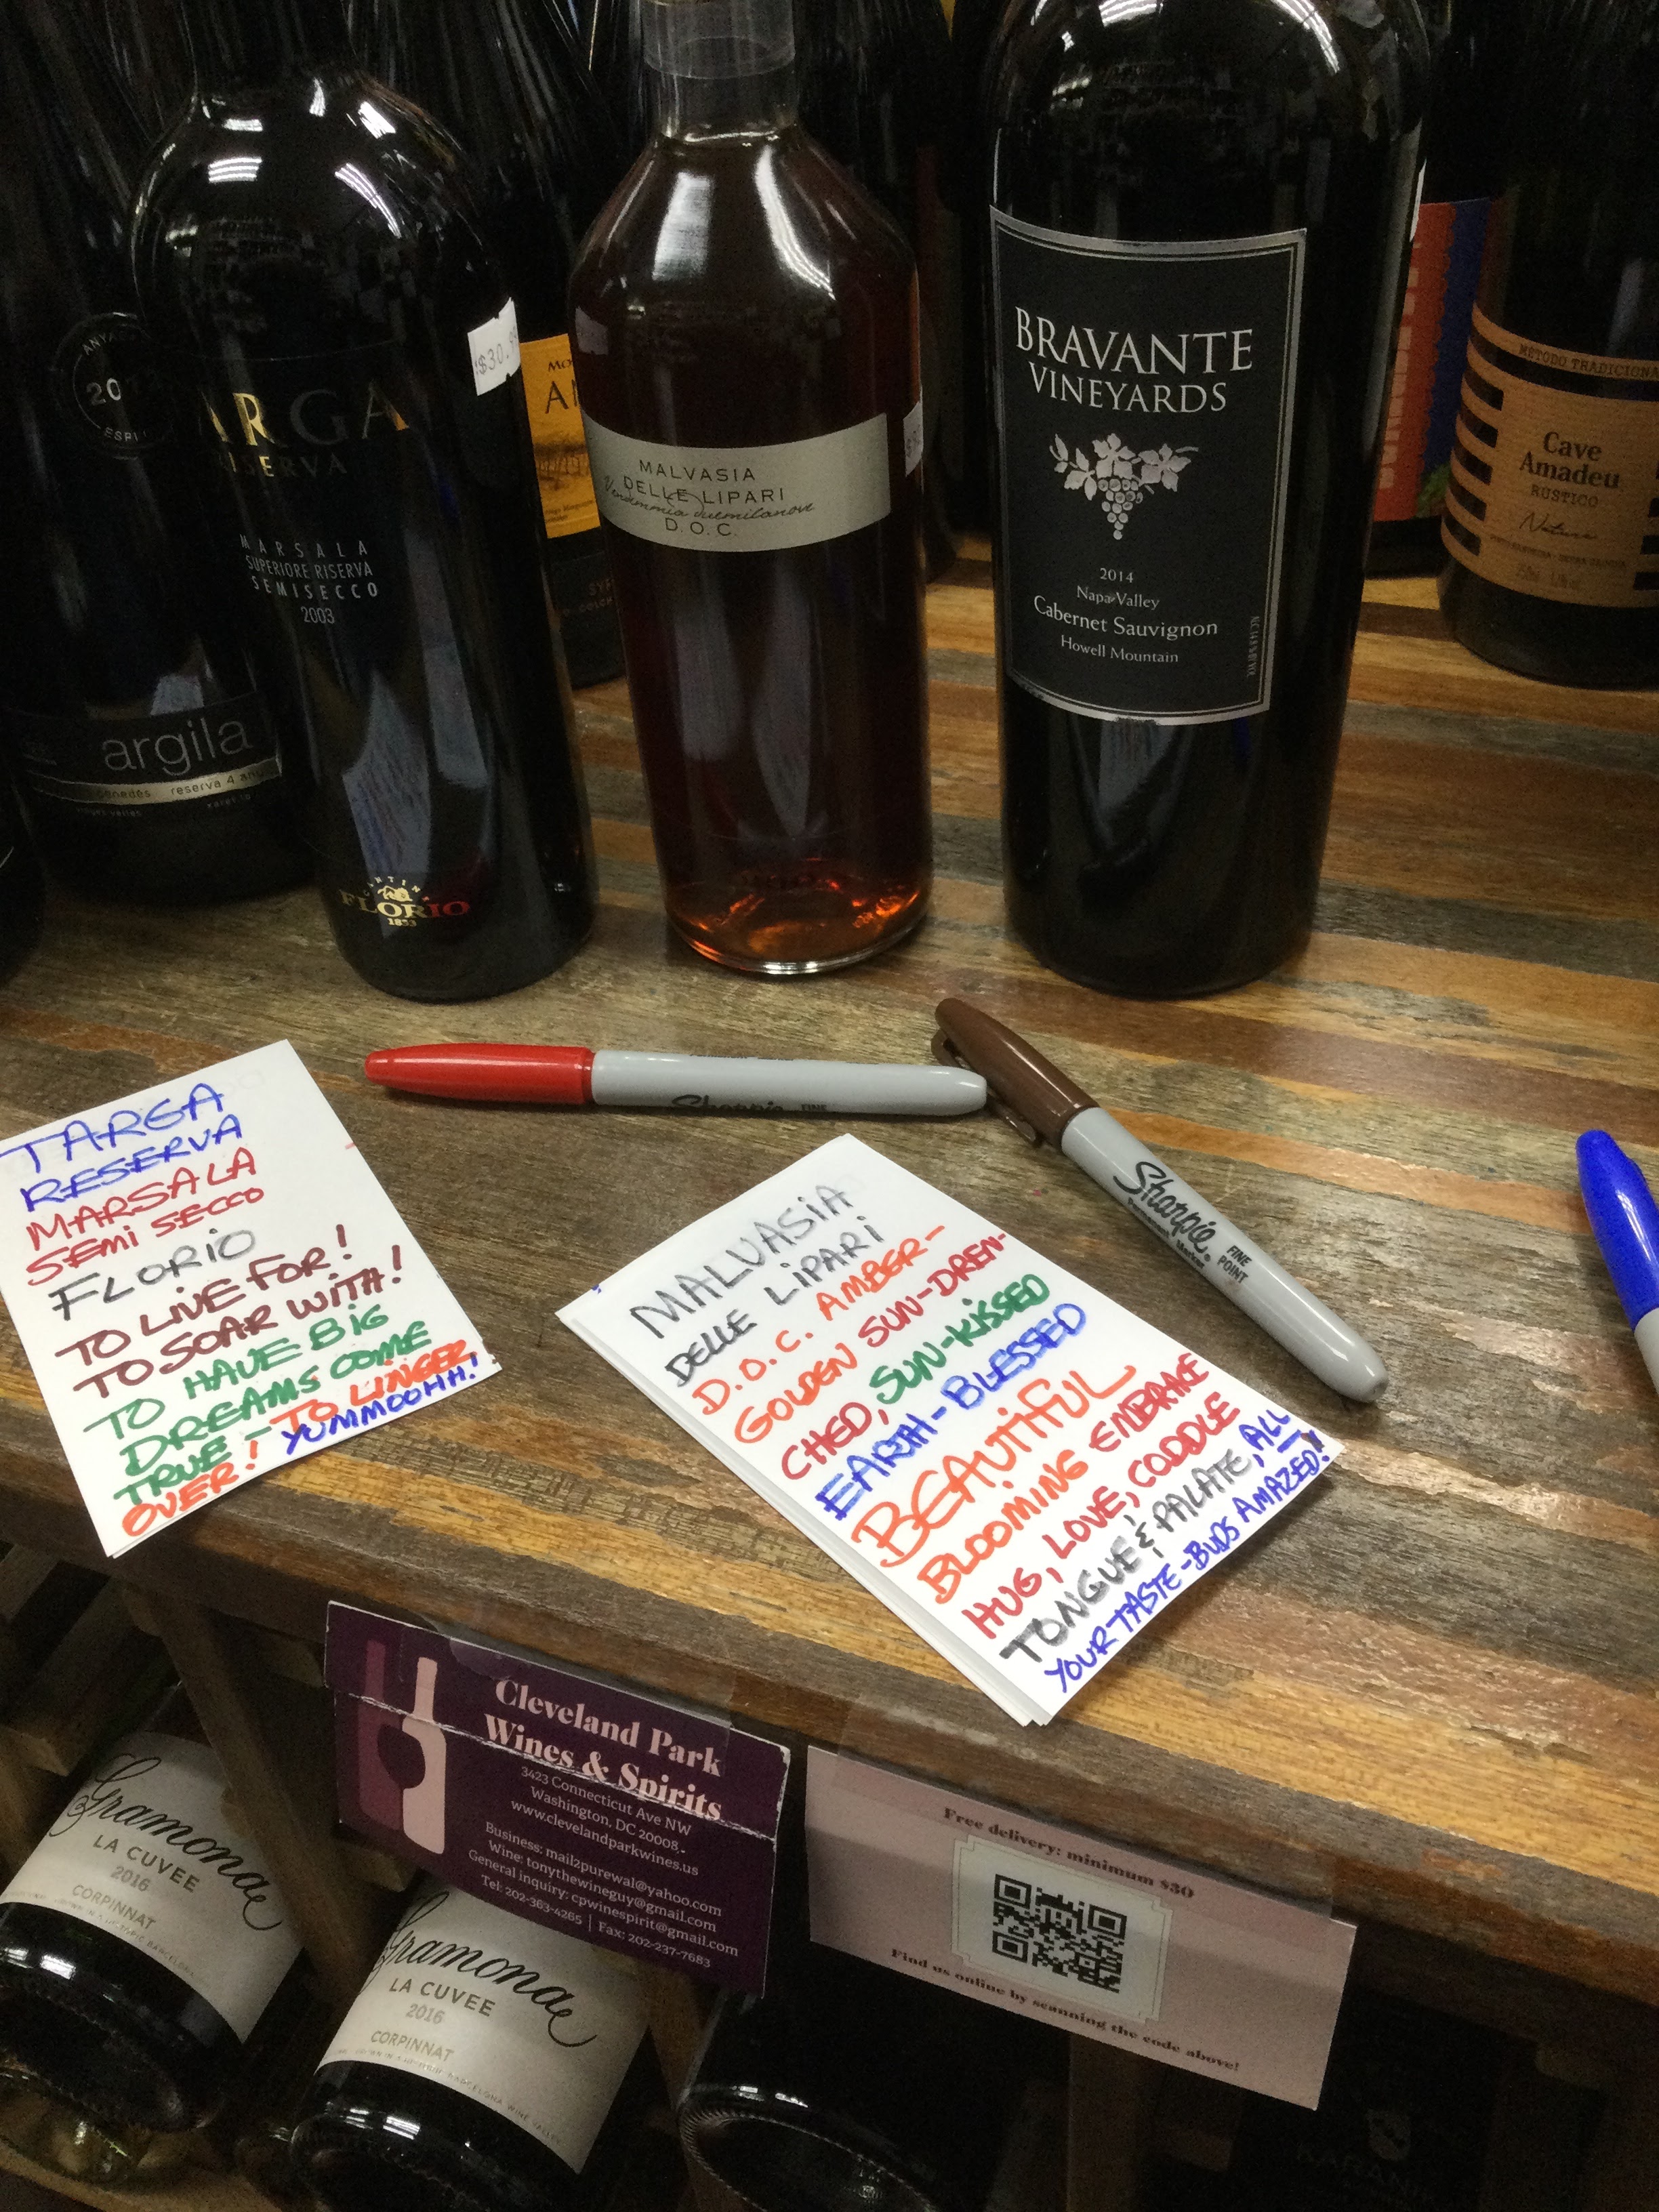 argila
reserva 4
ARGA
ISERVA
MARSALA
SUPERIORE RISERVA
SEMISECCO
2003
FLORIO
1833
MALVASIA
DELLE LIPARI
Vendemmia duemilanove
D.O.C.
BRAVANTE
VINEYARDS
2014
Napa Valley
Cabernet Sauvignon
Howell Mountain
Cave
Amadeu
RUSTICO
Sharpie FINE
Sharpie
Permanent Marker
FINE
POINT
TARGA
RESERVA
MARSALA
SEMI SECCO
FLORIO
TO LIVE FOR!
TO SOAR WITH!
TO HAVE BIG
DREAMS COME
TRUE - TO LINGER
OVER! YUMMOOHH!
MALVASIA
DELLE LIPARI
D.O.C. AMBER-
GOLDEN SUN-DREN-
CHED, SUN-KISSED
EARTH-BLESSED
BEAUTIFUL
BLOOMING EMBRACE
HUG, LOVE, CODDLE
TONGUE & PALATE, ALL
YOUR TASTE-BUDS AMAZED!
Cleveland Park
Wines & Spirits
3423 Connecticut Ave NW
Washington, DC 20008
www.clevelandparkwines.us
Business: mail2purewal@yahoo.com
Wine: tonythewineguy@gmail.com
General inquiry: cpwinespirit@gmail.com
Tel: 202-363-4265 | Fax: 202-237-7683
Free delivery: minimum $50
Find us online by scanning the code above!
Gramona
LA CUVEE
2016
CORPINNAT
Gramona
LA CUVEE
2016
CORPINNAT